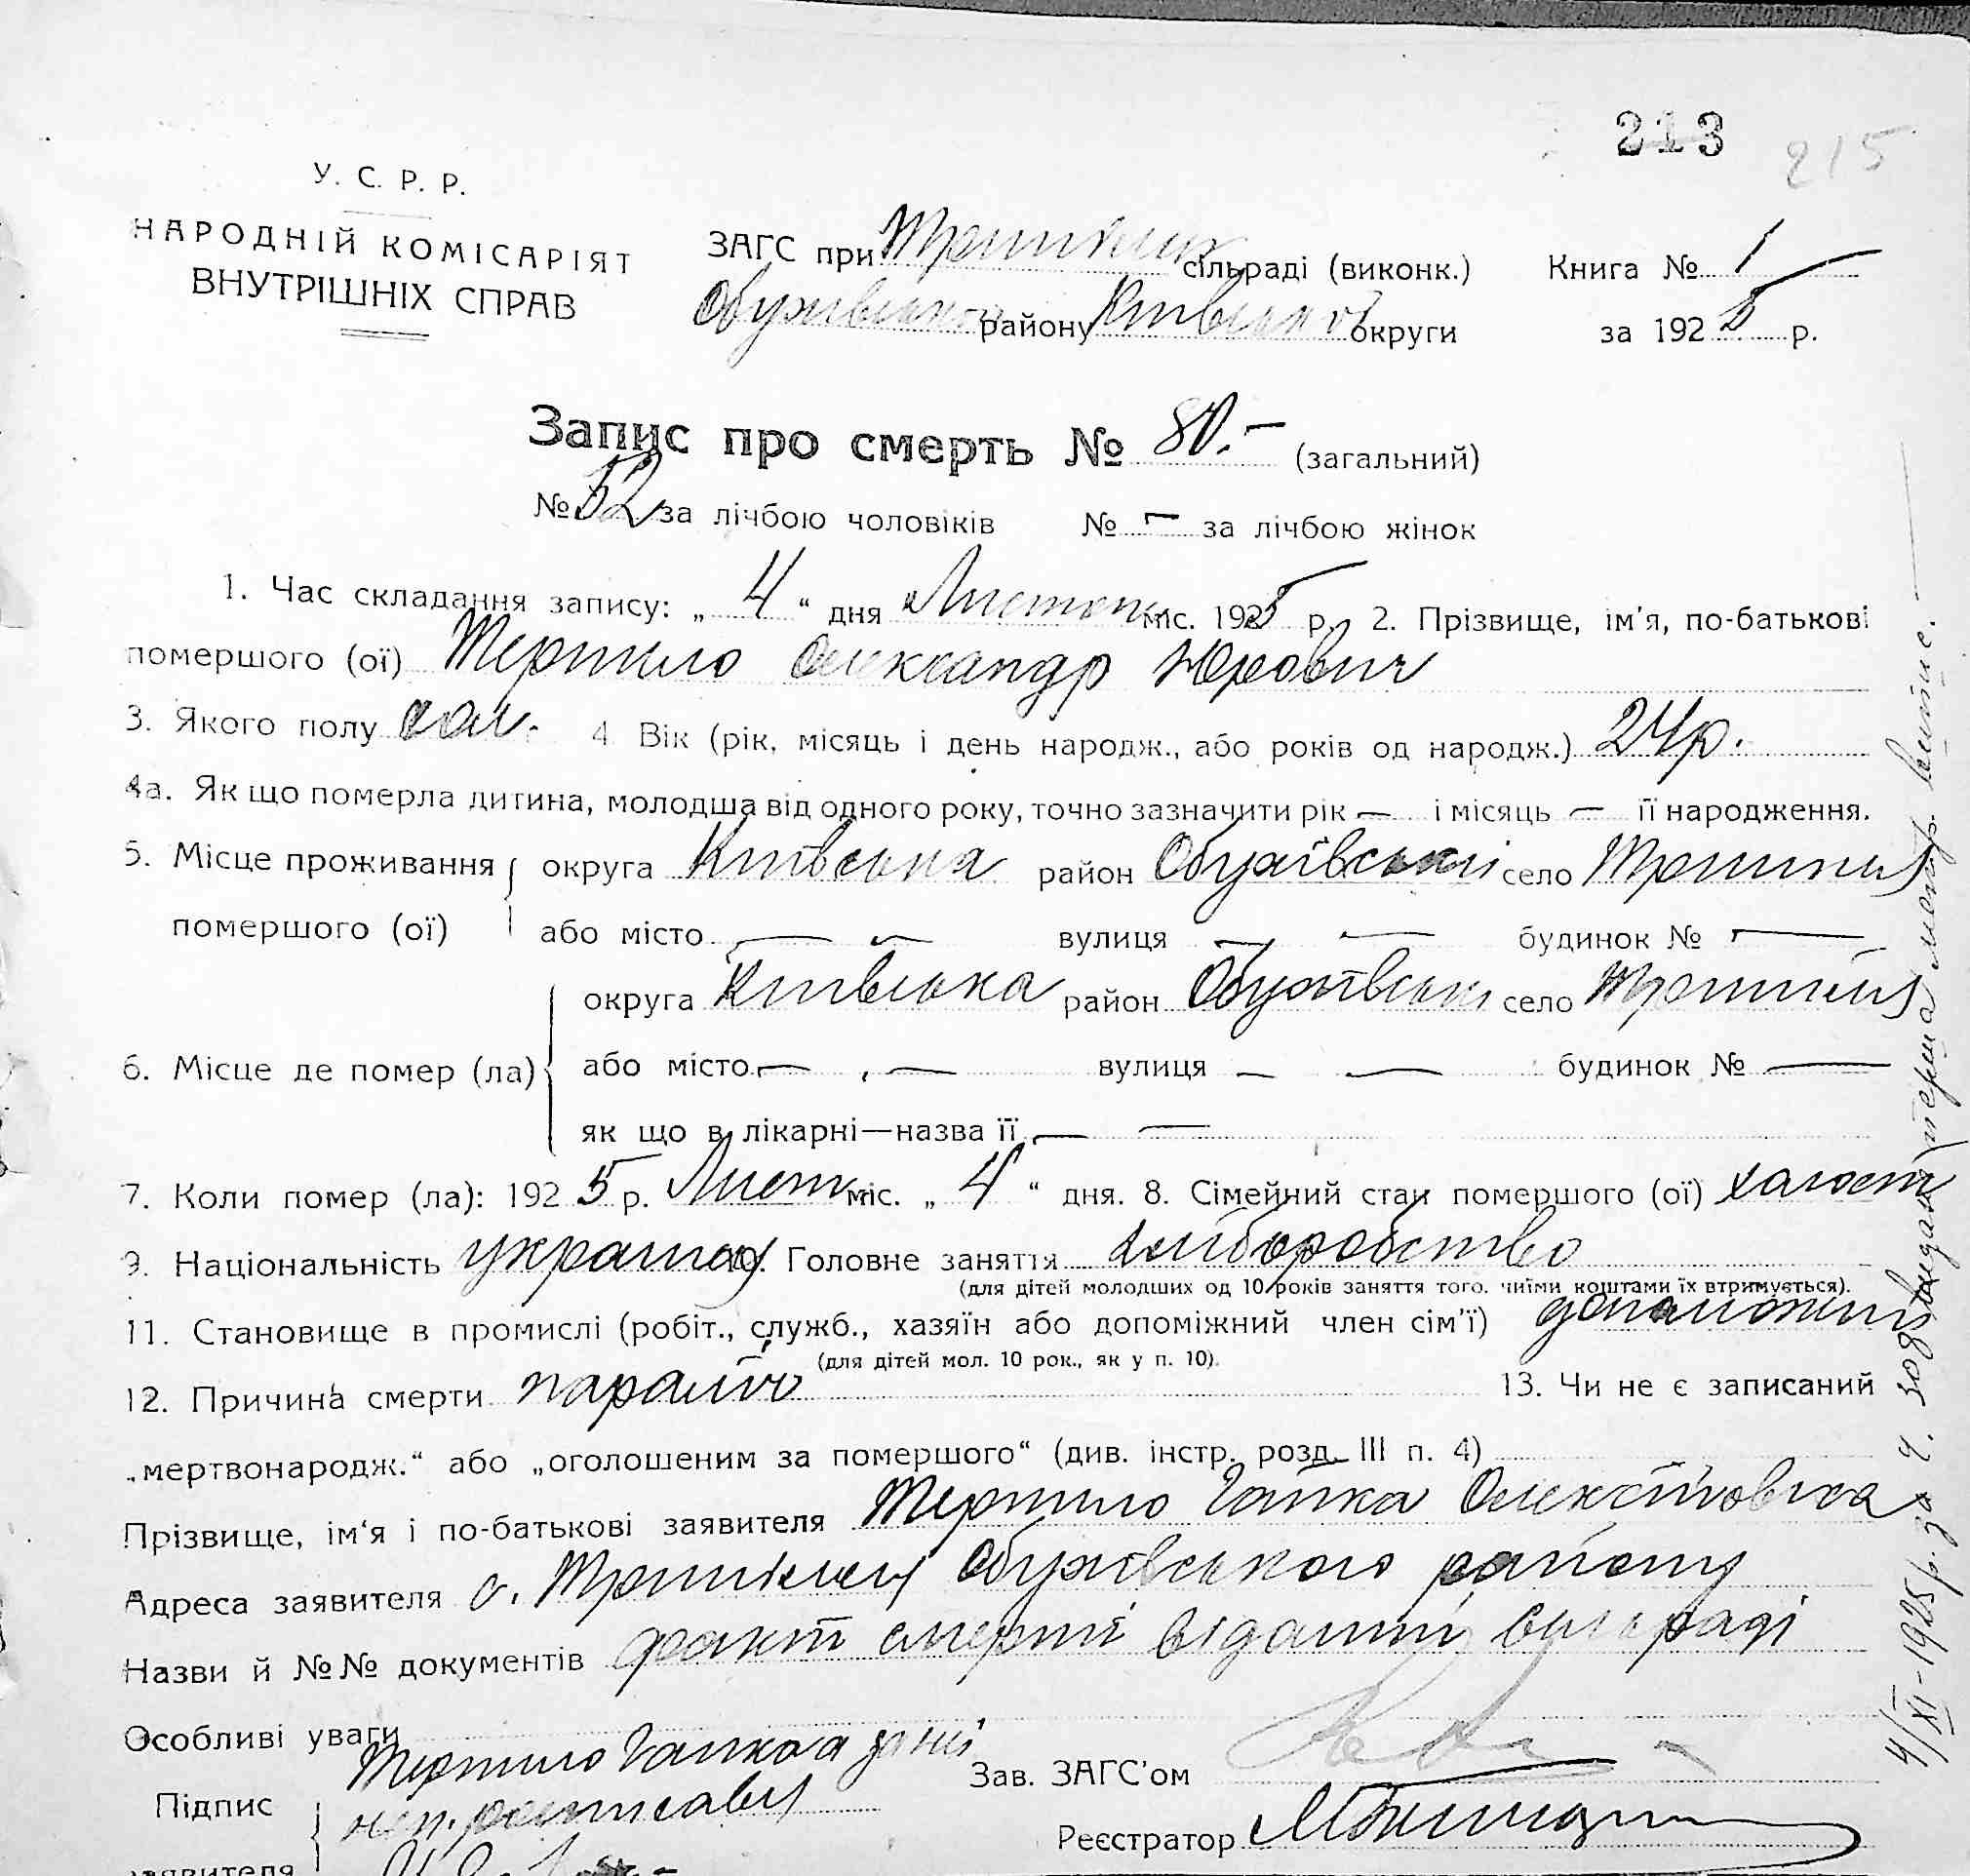 213 215
У. С. Р. Р.
НАРОДНІЙ КОМІСАРІЯТ
ВНУТРІШНІХ СПРАВ
ЗАГС при сільраді (виконк.) Книга № 1
Обухівського району Київської округи за 1925 р.
Запис про смерть № 80.- (загальний)
№ 52 за лічбою чоловіків № — за лічбою жінок
1. Час складання запису: „ 4 “ дня Листоп міс. 1925 р. 2. Прізвище, ім'я, по-батькові
помершого (ої) Терпило Олександр Юрович
3. Якого полу чол. 4 Вік (рік, місяць і день народж., або років од народж.) 24 р.
4а. Як що померла дитина, молодша від одного року, точно зазначити рік — і місяць — її народження.
5. Місце проживання округа Київська район Обухівський село
помершого (ої) або місто — — вулиця — — будинок № —
округа Київська район Обухівськ село
6. Місце де помер (ла) або місто — — вулиця — — будинок № —
як що в лікарні—назва її — —
7. Коли помер (ла): 1925 р. Лист міс. „ 4 “ дня. 8. Сімейний стан помершого (ої) холост
9. Національність 10. Головне заняття хліборобство
(для дітей молодших од 10 років заняття того, чиїми коштами їх втримується).
11. Становище в промислі (робіт., служб., хазяїн або допоміжний член сім'ї)
(для дітей мол. 10 рок., як у п. 10).
12. Причина смерти 13. Чи не є записаний
„мертвонародж.“ або „оголошеним за помершого“ (див. інстр. розд. III п. 4)
Прізвище, ім'я і по-батькові заявителя Терпило Гапка
Адреса заявителя с. Обухівського району
Назви й №№ документів факт смерті
Особливі уваги
Терпило Гапка а за неї
Підпис неп. росписався
заявителя
Зав. ЗАГС'ом
Реєстратор
4/XI-1925 р. за ч. 308 видана перша метр. випис.